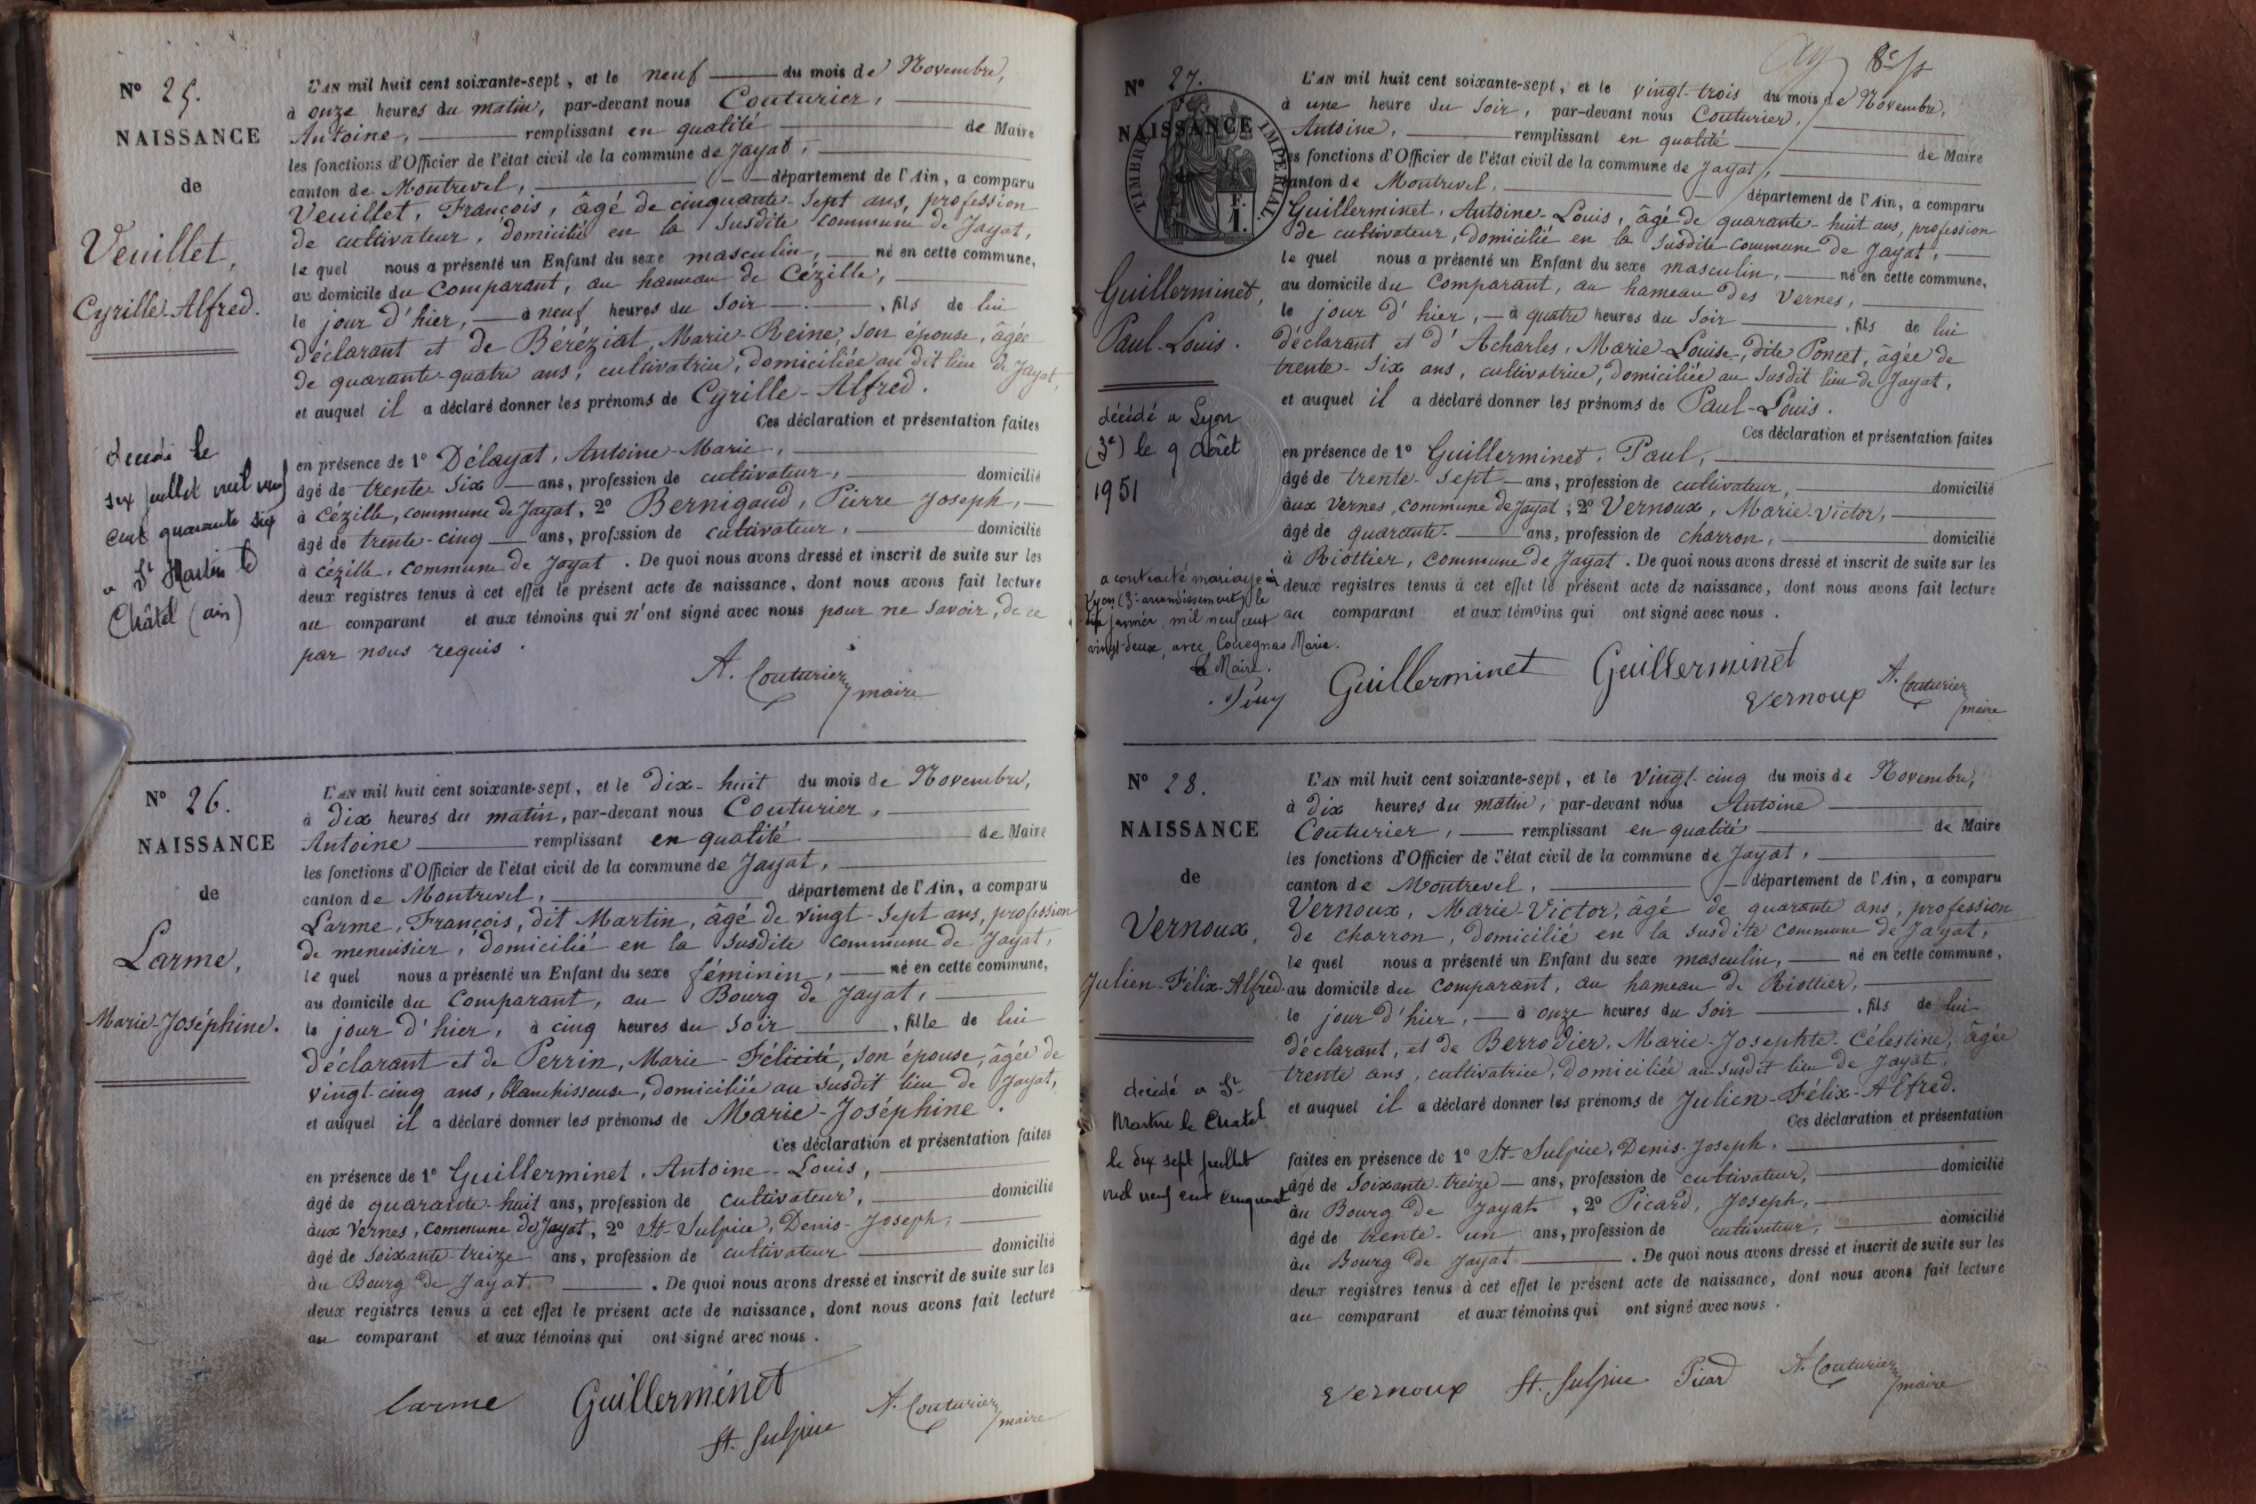 N° 25.
NAISSANCE
de
Veuillet,
Cyrille-Alfred.
décédé le
six juillet mil neuf
cent quarante six
a St Martin le
Châtel (ain)
L'AN mil huit cent soixante-sept, et le neuf du mois de Novembre,
à onze heures du matin, par-devant nous Couturier,
Antoine, remplissant en qualité de Maire
les fonctions d'Officier de l'état civil de la commune de Jayat,
canton de Montrevel, département de l'Ain, a comparu
Veuillet, François, âgé de cinquante-sept ans, profession
de cultivateur, domicilié en la susdite commune de Jayat,
le quel nous a présenté un Enfant du sexe masculin, né en cette commune,
au domicile du comparant, au hameau de Cézille,
le jour d'hier, à neuf heures du soir, fils de lui
déclarant et de Béréziat, Marie-Reine, son épouse, âgée
de quarante-quatre ans, cultivatrice, domiciliée au dit lieu de Jayat,
et auquel il a déclaré donner les prénoms de Cyrille-Alfred.
Ces déclaration et présentation faites
en présence de 1° Délayat, Antoine-Marie,
âgé de trente-six ans, profession de cultivateur, domicilié
à Cézille, commune de Jayat, 2° Bernigaud, Pierre Joseph,
âgé de trente-cinq ans, profession de cultivateur, domicilié
à cézille, commune de Jayat. De quoi nous avons dressé et inscrit de suite sur les
deux registres tenus à cet effet le présent acte de naissance, dont nous avons fait lecture
au comparant et aux témoins qui n'ont signé avec nous pour ne savoir, de ce
par nous requis.
A. Couturier
maire
N° 26.
NAISSANCE
de
Larme,
Marie-Joséphine.
L'AN mil huit cent soixante-sept, et le dix-huit du mois de Novembre,
à dix heures du matin, par-devant nous Couturier,
Antoine remplissant en qualité de Maire
les fonctions d'Officier de l'état civil de la commune de Jayat,
canton de Montrevel, département de l'Ain, a comparu
Larme, François, dit Martin, âgé de vingt-sept ans, profession
de menuisier, domicilié en la susdite commune de Jayat,
le quel nous a présenté un Enfant du sexe féminin, né en cette commune,
au domicile du comparant, au Bourg de Jayat,
le jour d'hier, à cinq heures du soir, fille de lui
déclarant et de Perrin, Marie-Félicité, son épouse, âgée de
vingt-cinq ans, blanchisseuse, domiciliée au susdit lieu de Jayat,
et auquel il a déclaré donner les prénoms de Marie-Joséphine.
Ces déclaration et présentation faites
en présence de 1° Guillerminet, Antoine-Louis,
âgé de quarante-huit ans, profession de cultivateur, domicilié
aux Vernes, commune de Jayat, 2° St-Sulpice, Denis-Joseph,
âgé de soixante-treize ans, profession de cultivateur domicilié
au Bourg de Jayat. De quoi nous avons dressé et inscrit de suite sur les
deux registres tenus à cet effet le présent acte de naissance, dont nous avons fait lecture
au comparant et aux témoins qui ont signé avec nous.
Larme Guillerminet
St. Sulpice A. Couturier
maire
8e
N° 27.
NAISSANCE
TIMBRE IMPERIAL.
F.
1.
Guillerminet,
Paul-Louis.
décédé a Lyon
(3e) le 9 Août
1951
a contracté mariage à
Lyon (3e arrondissement) le
janvier mil neuf cent
vingt-deux, avec Couegnas Marie.
le Maire.
L'AN mil huit cent soixante-sept, et le vingt-trois du mois de Novembre,
à une heure du soir, par-devant nous Couturier,
Antoine, remplissant en qualité de Maire
les fonctions d'Officier de l'état civil de la commune de Jayat,
canton de Montrevel, département de l'Ain, a comparu
Guillerminet, Antoine-Louis, âgé de quarante-huit ans, profession
de cultivateur, domicilié en la susdite commune de Jayat,
le quel nous a présenté un Enfant du sexe masculin, né en cette commune,
au domicile du comparant, au hameau des Vernes,
le jour d'hier, à quatre heures du soir, fils de lui
déclarant et d'Acharles, Marie-Louise, dite Poncet, âgée de
trente-six ans, cultivatrice, domiciliée au susdit lieu de Jayat,
et auquel il a déclaré donner les prénoms de Paul-Louis.
Ces déclaration et présentation faites
en présence de 1° Guillerminet, Paul,
âgé de trente-sept ans, profession de cultivateur, domicilié
aux Vernes, commune de Jayat, 2° Vernoux, Marie-Victor,
âgé de quarante ans, profession de charron, domicilié
à Riottier, commune de Jayat. De quoi nous avons dressé et inscrit de suite sur les
deux registres tenus à cet effet le présent acte de naissance, dont nous avons fait lecture
au comparant et aux témoins qui ont signé avec nous.
Guillerminet Guillerminet
Vernoux A. Couturier
maire
N° 28.
NAISSANCE
de
Vernoux,
Julien-Félix-Alfred.
décédé a St-
Martin le Chatel
le dix sept juillet
mil neuf cent cinquante
L'AN mil huit cent soixante-sept, et le vingt-cinq du mois de Novembre,
à dix heures du matin, par-devant nous Antoine
Couturier, remplissant en qualité de Maire
les fonctions d'Officier de l'état civil de la commune de Jayat,
canton de Montrevel, département de l'Ain, a comparu
Vernoux, Marie-Victor, âgé de quarante ans, profession
de charron, domicilié en la susdite commune de Jayat,
le quel nous a présenté un Enfant du sexe masculin, né en cette commune,
au domicile du comparant, au hameau de Riottier,
le jour d'hier, à onze heures du soir, fils de lui
déclarant, et de Berrodier, Marie-Josephte-Célestine, âgée
trente ans, cultivatrice, domiciliée au susdit lieu de Jayat,
et auquel il a déclaré donner les prénoms de Julien-Félix-Alfred.
Ces déclaration et présentation
faites en présence de 1° St-Sulpice, Denis-Joseph,
âgé de soixante-treize ans, profession de cultivateur, domicilié
au Bourg de Jayat, 2° Picard, Joseph,
âgé de trente-un ans, profession de cultivateur, domicilié
au Bourg de Jayat. De quoi nous avons dressé et inscrit de suite sur les
deux registres tenus à cet effet le présent acte de naissance, dont nous avons fait lecture
au comparant et aux témoins qui ont signé avec nous.
Vernoux St. Sulpice Picard A. Couturier
maire